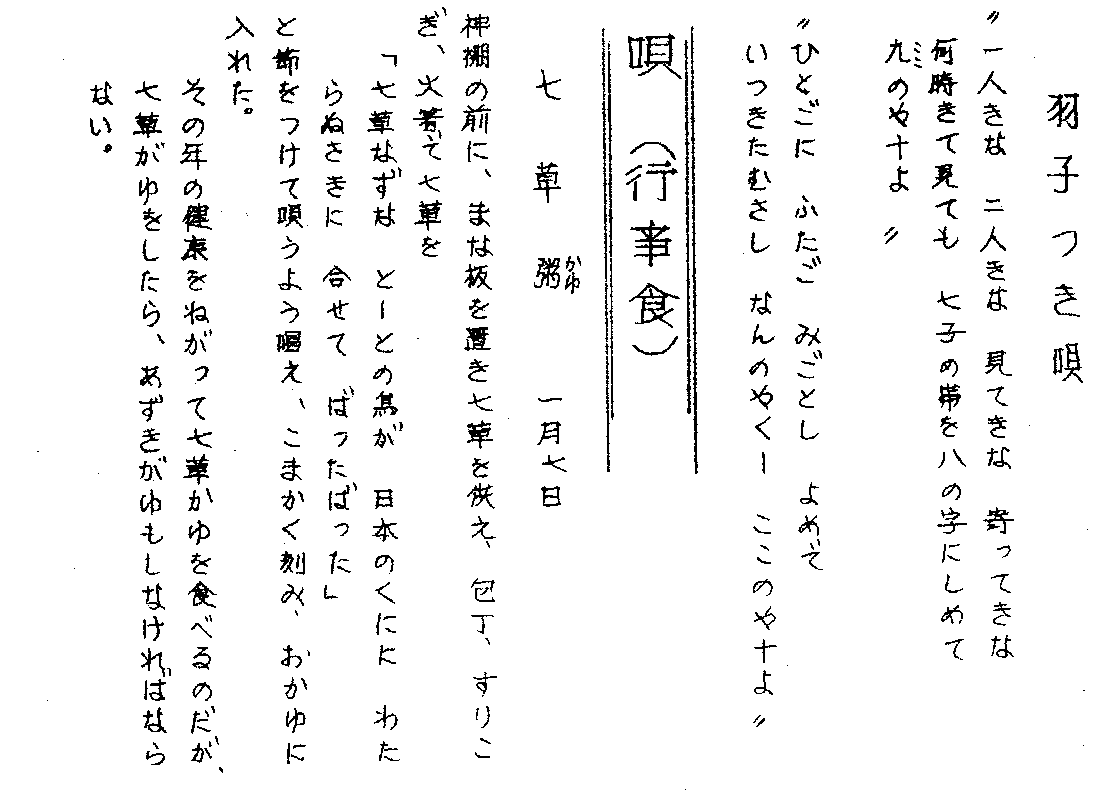 羽子つき唄
〃一人きな 二人きな 見てきな 寄ってきな
何時きて見ても 七子の帯を八の字にしめて
九のや十よ〃
ここ
〃ひとごに ふたご みごとし よめぞ
いつきたむさし なんのやくー ここのや十よ〃
唄(行事食)
七草粥 一月七日
かゆ
神棚の前に、まな板を置き七草を供え、包丁、すりこ
ぎ、火箸で七草を
「七草なずな とーとの鳥が 日本のくにに わた
らぬさきに 合せて ばったばった」
と節をつけて唄うよう唱え、こまかく刻み、おかゆに
入れた。
その年の健康をねがって七草かゆを食べるのだが、
七草がゆをしたら、あずきがゆもしなければなら
ない。